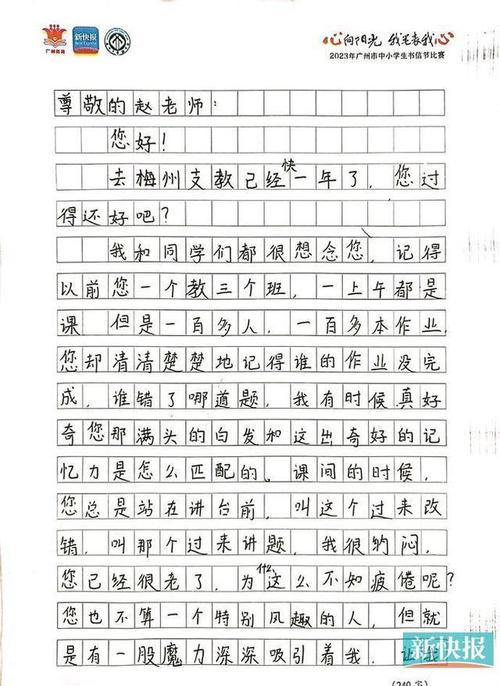 广州教育
新快报
心向阳光 我笔表我心
2023年广州市中小学生书信节比赛
尊敬的赵老师：
您好！
去梅州支教已经快一年了，您过
得还好吧？
我和同学们都很想念您，记得
以前您一个教三个班，一上午都是
课，但是一百多人，一百多本作业，
您却清清楚楚地记得谁的作业没完
成，谁错了哪道题，我有时候真好
奇您那满头的白发和这出奇好的记
忆力是怎么匹配的，课间的时候，
您总是站在讲台前，叫这个过来改
错，叫那个过来讲题，我很纳闷，
您已经很老了，为什么这么不知疲倦呢？
您也不算一个特别风趣的人，但就
是有一股魔力深深吸引着我，让
新快报